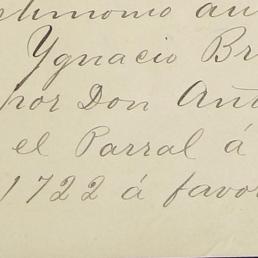 stimonio au
Ygnacio Br
por Don Añ
el Parral á
1722 á favor